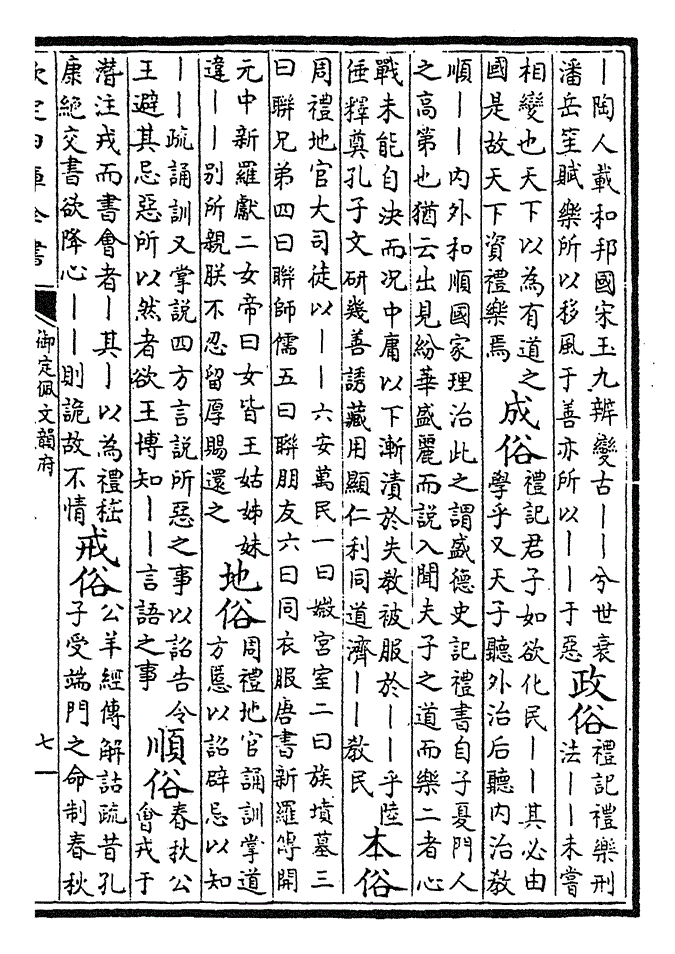 ｜陶人載和邦國宋玉九辨變古｜｜兮世衰
潘岳笙賦樂所以移風于善亦所以｜｜于惡
政俗
禮記禮樂刑
法｜｜未嘗
相變也天下以為有道之
國是故天下資禮樂焉
成俗
禮記君子如欲化民｜｜其必由
學乎又天子聽外治后聽内治教
順｜｜内外和順國家理治此之謂盛德史記禮書自子夏門人
之高第也猶云出見紛華盛麗而說入聞夫子之道而樂二者心
戰未能自決而況中庸以下漸漬於失教被服於｜｜乎陸
倕釋奠孔子文研幾善誘藏用顯仁利同道濟｜｜教民
本俗
周禮地官大司徒以｜｜六安萬民一曰媺宮室二曰族墳墓三
曰聯兄弟四曰聯師儒五曰聯朋友六曰同衣服唐書新羅傳開
元中新羅獻二女帝曰女皆王姑姊妹
違｜｜别所親朕不忍留厚賜還之
地俗
周禮地官誦訓掌道
方慝以詔辟忌以知
｜｜疏誦訓又掌說四方言說所惡之事以詔告令
王避其忌惡所以然者欲王博知｜｜言語之事
順俗
春秋公
會戎于
潛注戎而書會者｜其｜以為禮嵇
康絶交書欲降心｜｜則詭故不情
戒俗
公羊經傳解詁疏昔孔
子受端門之命制春秋
欽定四庫全書
御定佩文韻府
七